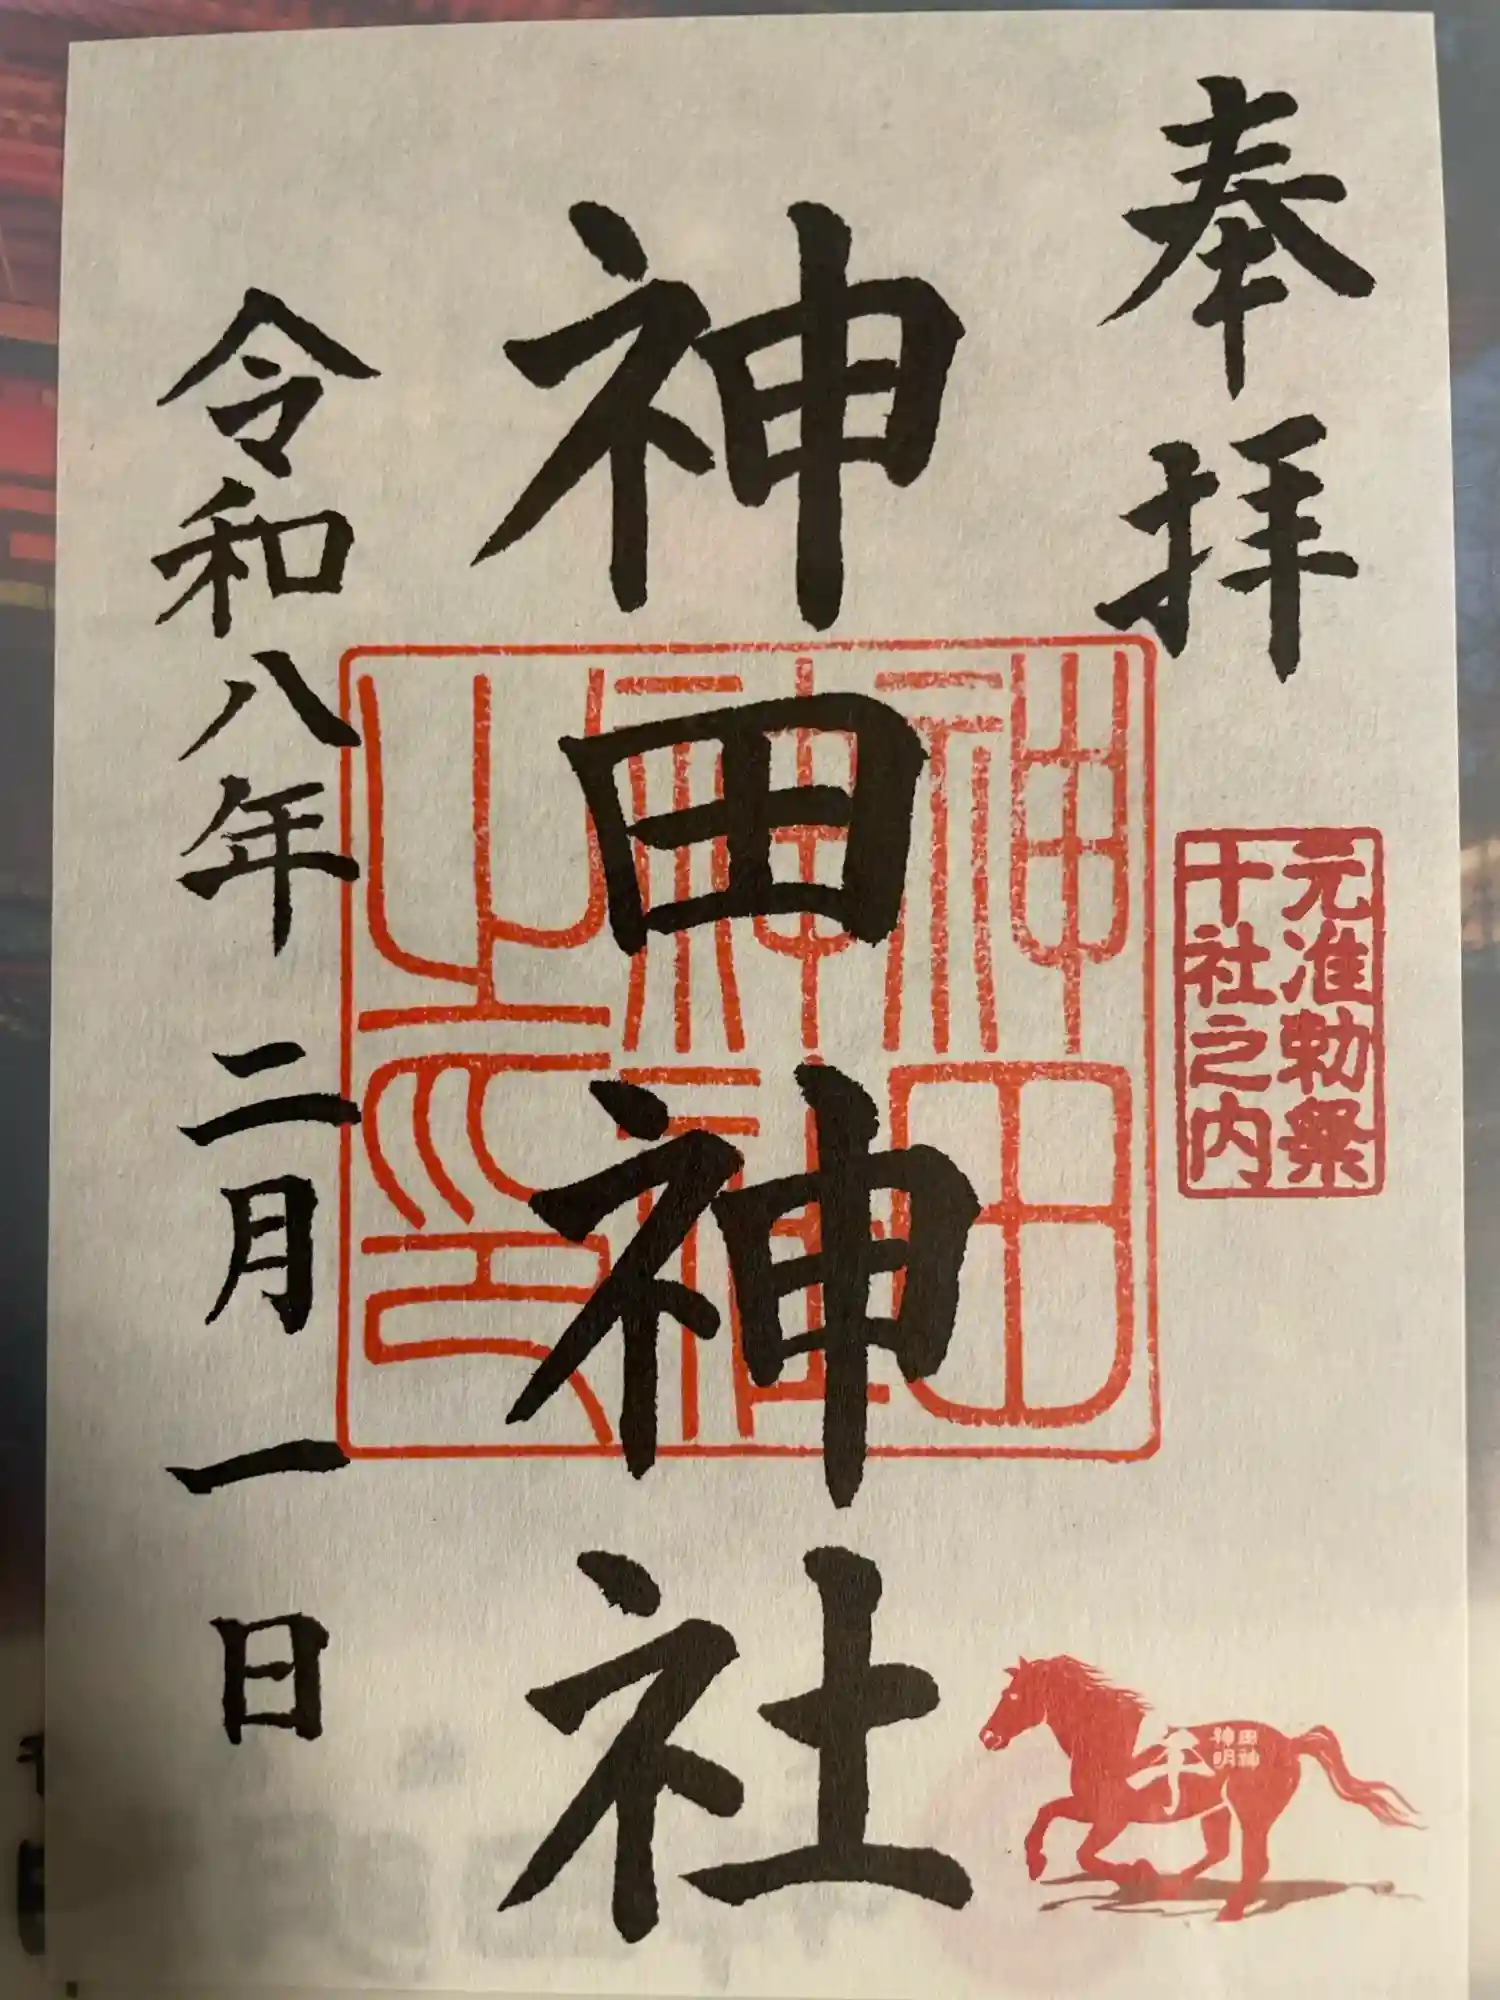 奉拝
元准勅祭
十社之内
神田神社
神田
神社
之印
令和八年二月一日
午
田神
神明